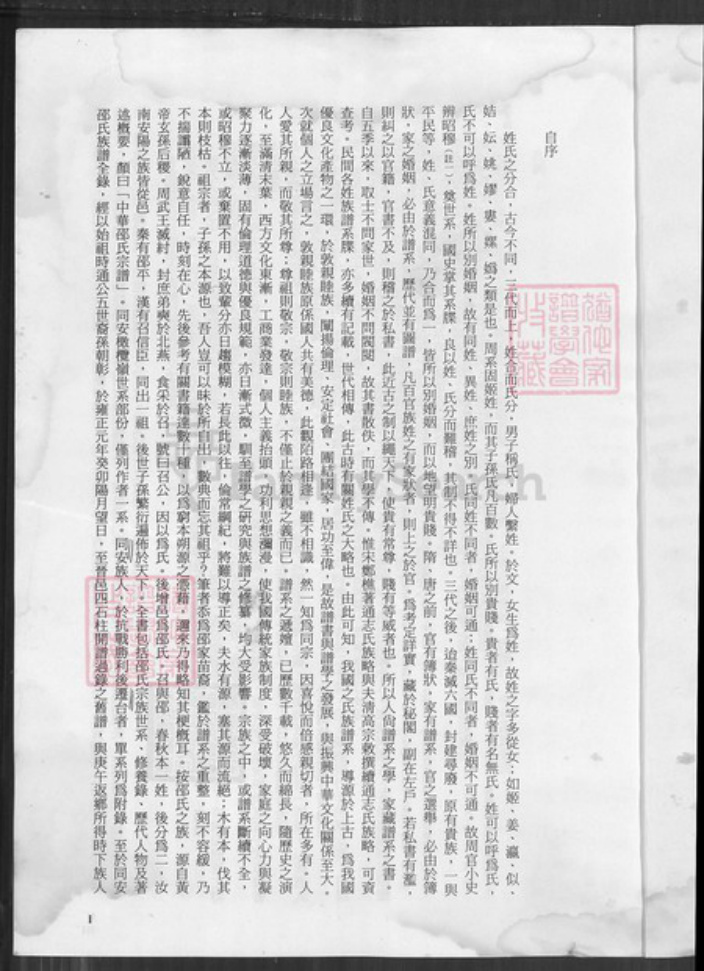 自序
姓氏之分合，古今不同，三代而上，姓合而氏分，男子稱氏，婦人繫姓。於文，女生爲姓，故姓之字多從女；如姬、姜、瀛、似、
姞、妘、姚、嫪、婁、嫘、嬀之類是也。周系固姬姓，而其子孫氏凡百數。氏所以別貴賤。貴者有氏，賤者有名無氏。姓可以呼爲氏，
氏不可以呼爲姓。姓所以別婚姻，故有同姓、異姓、庶姓之別，氏同姓不同者，婚姻可通；姓同氏不同者，婚姻不可通。故周官小史
辨昭穆（註一），奠世系，國史掌其系牒，良以姓、氏分而難稽，其制不得不詳也。三代之後，迨秦滅六國，封建尋廢，原有貴族，一與
平民等，姓、氏意義混同，乃合而爲一，皆所以別婚姻，而以地望明貴賤。隋、唐之前，官有簿狀，家有譜系，官之選舉，必由於簿
狀，家之婚姻，必由於譜系，歷代並有圖譜，凡百官族姓之有家狀者，則上之於官。爲考定詳實，藏於秘閣，副在左戶。若私書有濫，
則糾之以官籍，官書不及，則稽之於私書，此近古之制以繩天下，使貴有常尊，賤有等威者也。所以人尙譜系之學，家藏譜系之書。
自五季以來，取士不問家世，婚姻不問閥閱，故其書散佚，而其學不傳。惟宋鄭樵著通志氏族略與夫淸高宗敕撰續通志氏族略，可資
查考。民間各姓族譜系牒，亦多續有記載，世代相傳，此古時有關姓氏之大略也。由此可知，我國之氏族譜系，導源於上古，爲我國
優良文化產物之一環，於敦親睦族，闡揚倫理、安定社會、團結國家，居功至偉，是故譜書與譜學之發展，與振興中華文化關係至大。
次就個人之立場言之，敦親睦族原係國人共有美德，此觀陌路相逢，雖不相識，然一知爲同宗，因喜悅而倍感親切者，所在多有。人
人愛其所親，而敬其所尊；尊祖則敬宗，敬宗則睦族，不僅止於親親之義而已。譜系之遞嬗，已歷數千載，悠久而綿長，隨歷史之演
化，至滿淸末葉，西方文化東漸，工商業發達，個人主義抬頭，功利思想瀰漫，使我國傳統家族制度，深受破壞，家庭之向心力與凝
聚力逐漸淡薄，固有倫理道德與優良規範，亦日漸式微，馴至譜學之硏究與族譜之修纂，均大受影響。宗族之中，或譜系斷續不全，
或昭穆不立，或棄置不用，以致輩分亦日趨模糊，若長此以往，倫常綱紀，將難以導正矣，夫水有源，塞其源而流絕；木有本，伐其
本則枝枯。祖宗者，子孫之本源也，吾人豈可以昧於所自出，數典而忘其祖乎？筆者忝爲邵家苗裔，鑑於譜系之重整，刻不容緩，乃
不揣譾陋，銳意自任，時刻在心，先後參考有關書籍達數十種，以爲窮本朔源之憑藉，邇來乃得略知其梗槪耳。按邵氏之族，源自黃
帝玄孫后稷。周武王滅紂，封庶弟奭於北燕，食采於召，號曰召公，因以爲氏。後增邑爲邵氏，召與邵，春秋本一姓，後分爲二，汝
南安陽之族皆從邑。秦有召平，漢有召信臣，同出一祖。後世子孫繁衍遍佈於天下。全書包括邵氏宗族世系、修養錄、歷代人物及著
述槪要，顏曰「中華邵氏宗譜」。同安橄欖嶺世系部份，僅列作者一系。同安族人，於抗戰勝利後遷台者，單系列爲附錄。至於同安
邵氏族譜全錄，經以始祖時通公五世裔孫朝彰，於雍正元年癸卯陽月望日，至晉邑四石柱開譜過錄之舊譜，與庚午返鄕所得時下族人
1